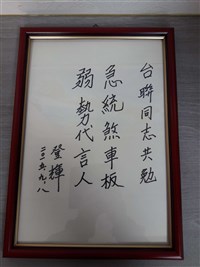 台聯同志共勉
急統煞車板
弱勢代言人
登輝
二〇〇五.九.八